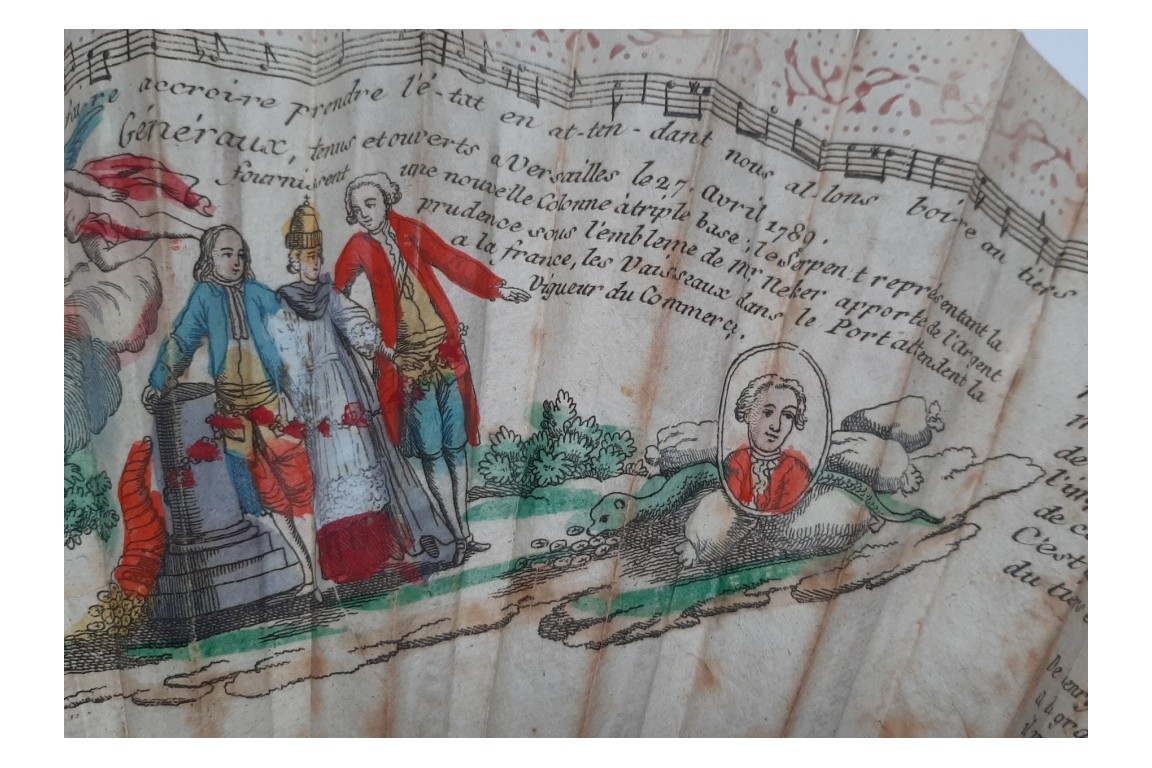 accroire prendre l'é-tat en at-ten-dant nous al lons boire au tiers
Généraux, tenus et ouverts a Versailles le 27. Avril 1789.
fournissent une nouvelle Colonne a triple base; le Serpent représentant la
prudence sous l'embleme de Mr Neker apporte de l'Argent
a la france, les Vaisseaux dans le Port attendent la
Vigueur du Commerce.
de
de c
C'est
du tie
De